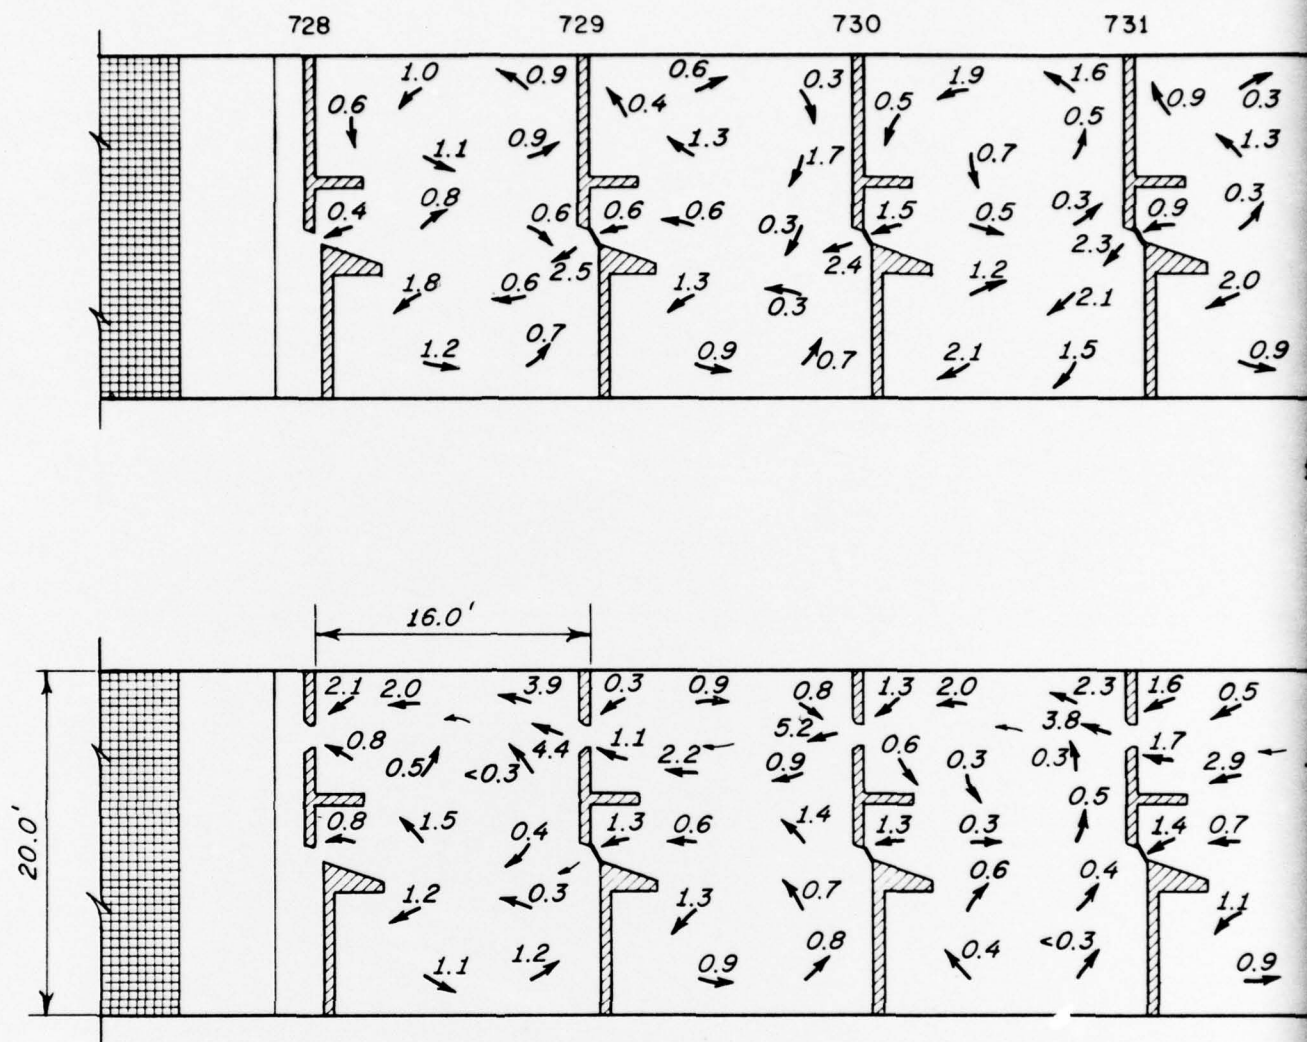 728 729 730 731
1.0 0.9 0.6 0.3 1.9 1.6
0.6 0.4 0.5 0.5 0.9 0.3
1.1 0.9 1.3 1.7 0.7 1.3
0.4 0.8 0.6 0.6 0.6 0.3 1.5 0.5 0.3 0.9 0.3
2.5 2.4 2.3
1.8 0.6 1.3 0.3 1.2 2.1 2.0
1.2 0.7 0.9 0.7 2.1 1.5 0.9
16.0'
2.1 2.0 3.9 0.3 0.9 0.8 1.3 2.0 2.3 1.6 0.5
5.2 3.8
0.8 4.4 1.1 2.2 0.6 1.7
0.5 <0.3 0.9 0.3 0.3 2.9
0.5
0.8 1.5 0.4 1.3 0.6 1.4 1.3 0.3 1.4 0.7
20.0'
1.2 0.3 1.3 0.7 0.6 0.4 1.1
1.1 1.2 0.9 0.8 0.4 <0.3 0.9